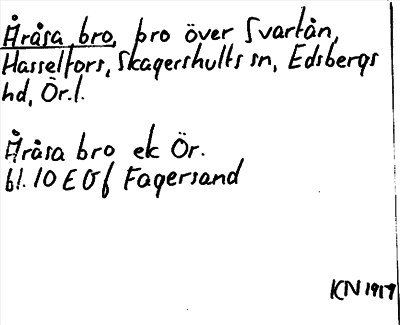 Åråsa bro, bro över Svartån,
Hasselfors, Skagershults sn, Edsbergs
hd, Ör.l.
Åråsa bro ek Ör.
bl. 10 E Öf Fagersand
KN 1917